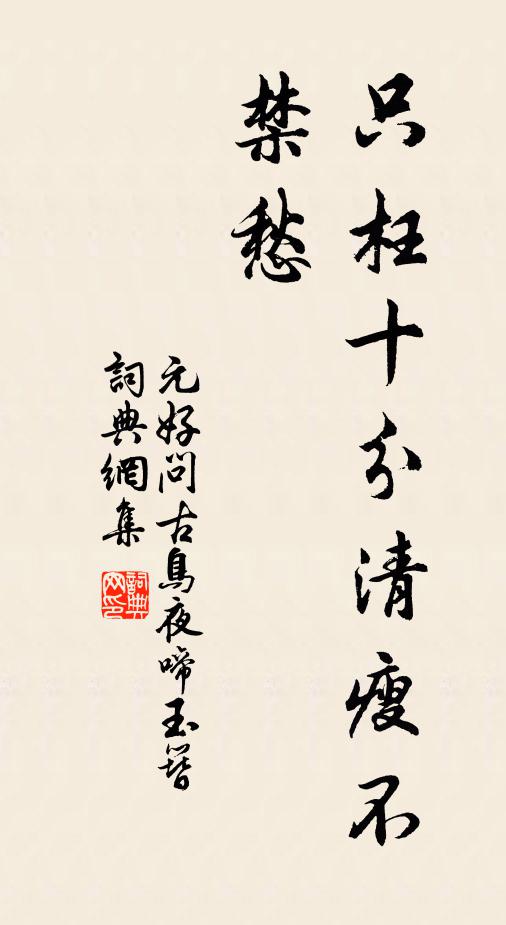 只枉十分清瘦不
禁愁
元好問古烏夜啼玉簪
詞典網集
詞典
网印